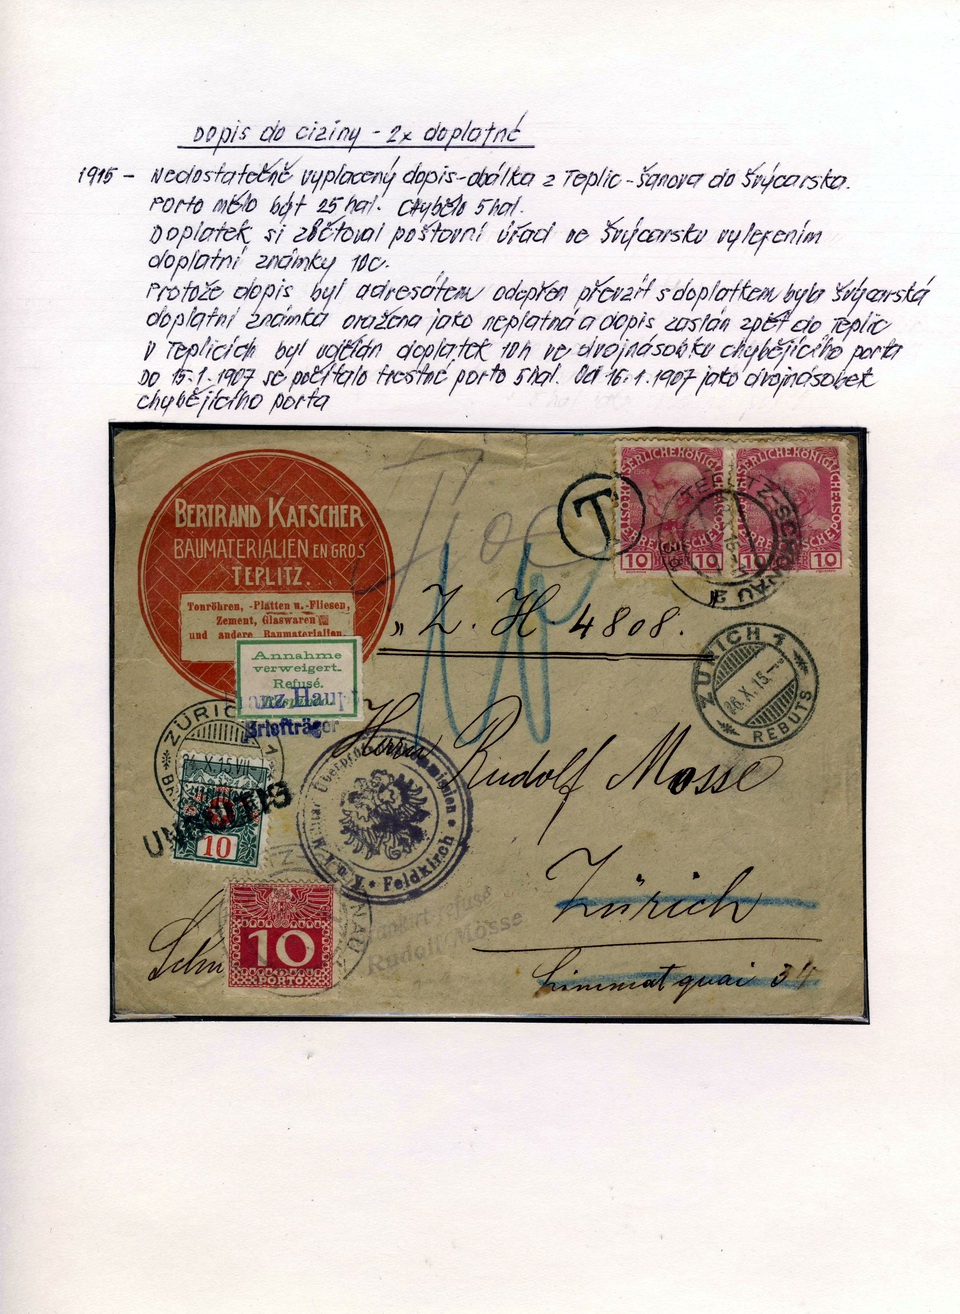 Dopis do ciziny - 2x doplatné
1915 - Nedostatečně vyplacený dopis-obálka z Teplic-Šanova do Švýcarska.
Porto mělo být 25 hal. Chybělo 5 hal.
Doplatek si zúčtoval poštovní úřad ve Švýcarsku vylepením
doplatní známky 10c.
Protože dopis byl adresátem odepřen převzít s doplatkem byla švýcarská
doplatní známka oražena jako neplatná a dopis zaslán zpět do Teplic
V Teplicích byl udělán doplatek 10h ve dvojnásobku chybějícího porta
Do 15.1.1907 se počítalo trestné porto 5 hal. Od 16.1.1907 jako dvojnásobek
chybějícího porta
BERTRAND KATSCHER
BAUMATERIALIEN EN GROS
TEPLITZ.
Tonröhren, -Platten u. -Fliesen,
Zement, Glaswaren
und andere Baumaterialien.
T
10 10 10 10
TEPLITZ-SCHÖNAU
„Z. H 4808.
Annahme
verweigert.
Refusé.
Franz Haupt
Briefträger
ZÜRICH 1
26.X.15.-
REBUTS
ZÜRICH 1
24.X.15.VII-
Herrn Rudolf Mosse
UNGÜLTIG
10
Feldkirch
Zürich
10
PORTO
refusé
Rudolf Mosse
Limmatquai 34